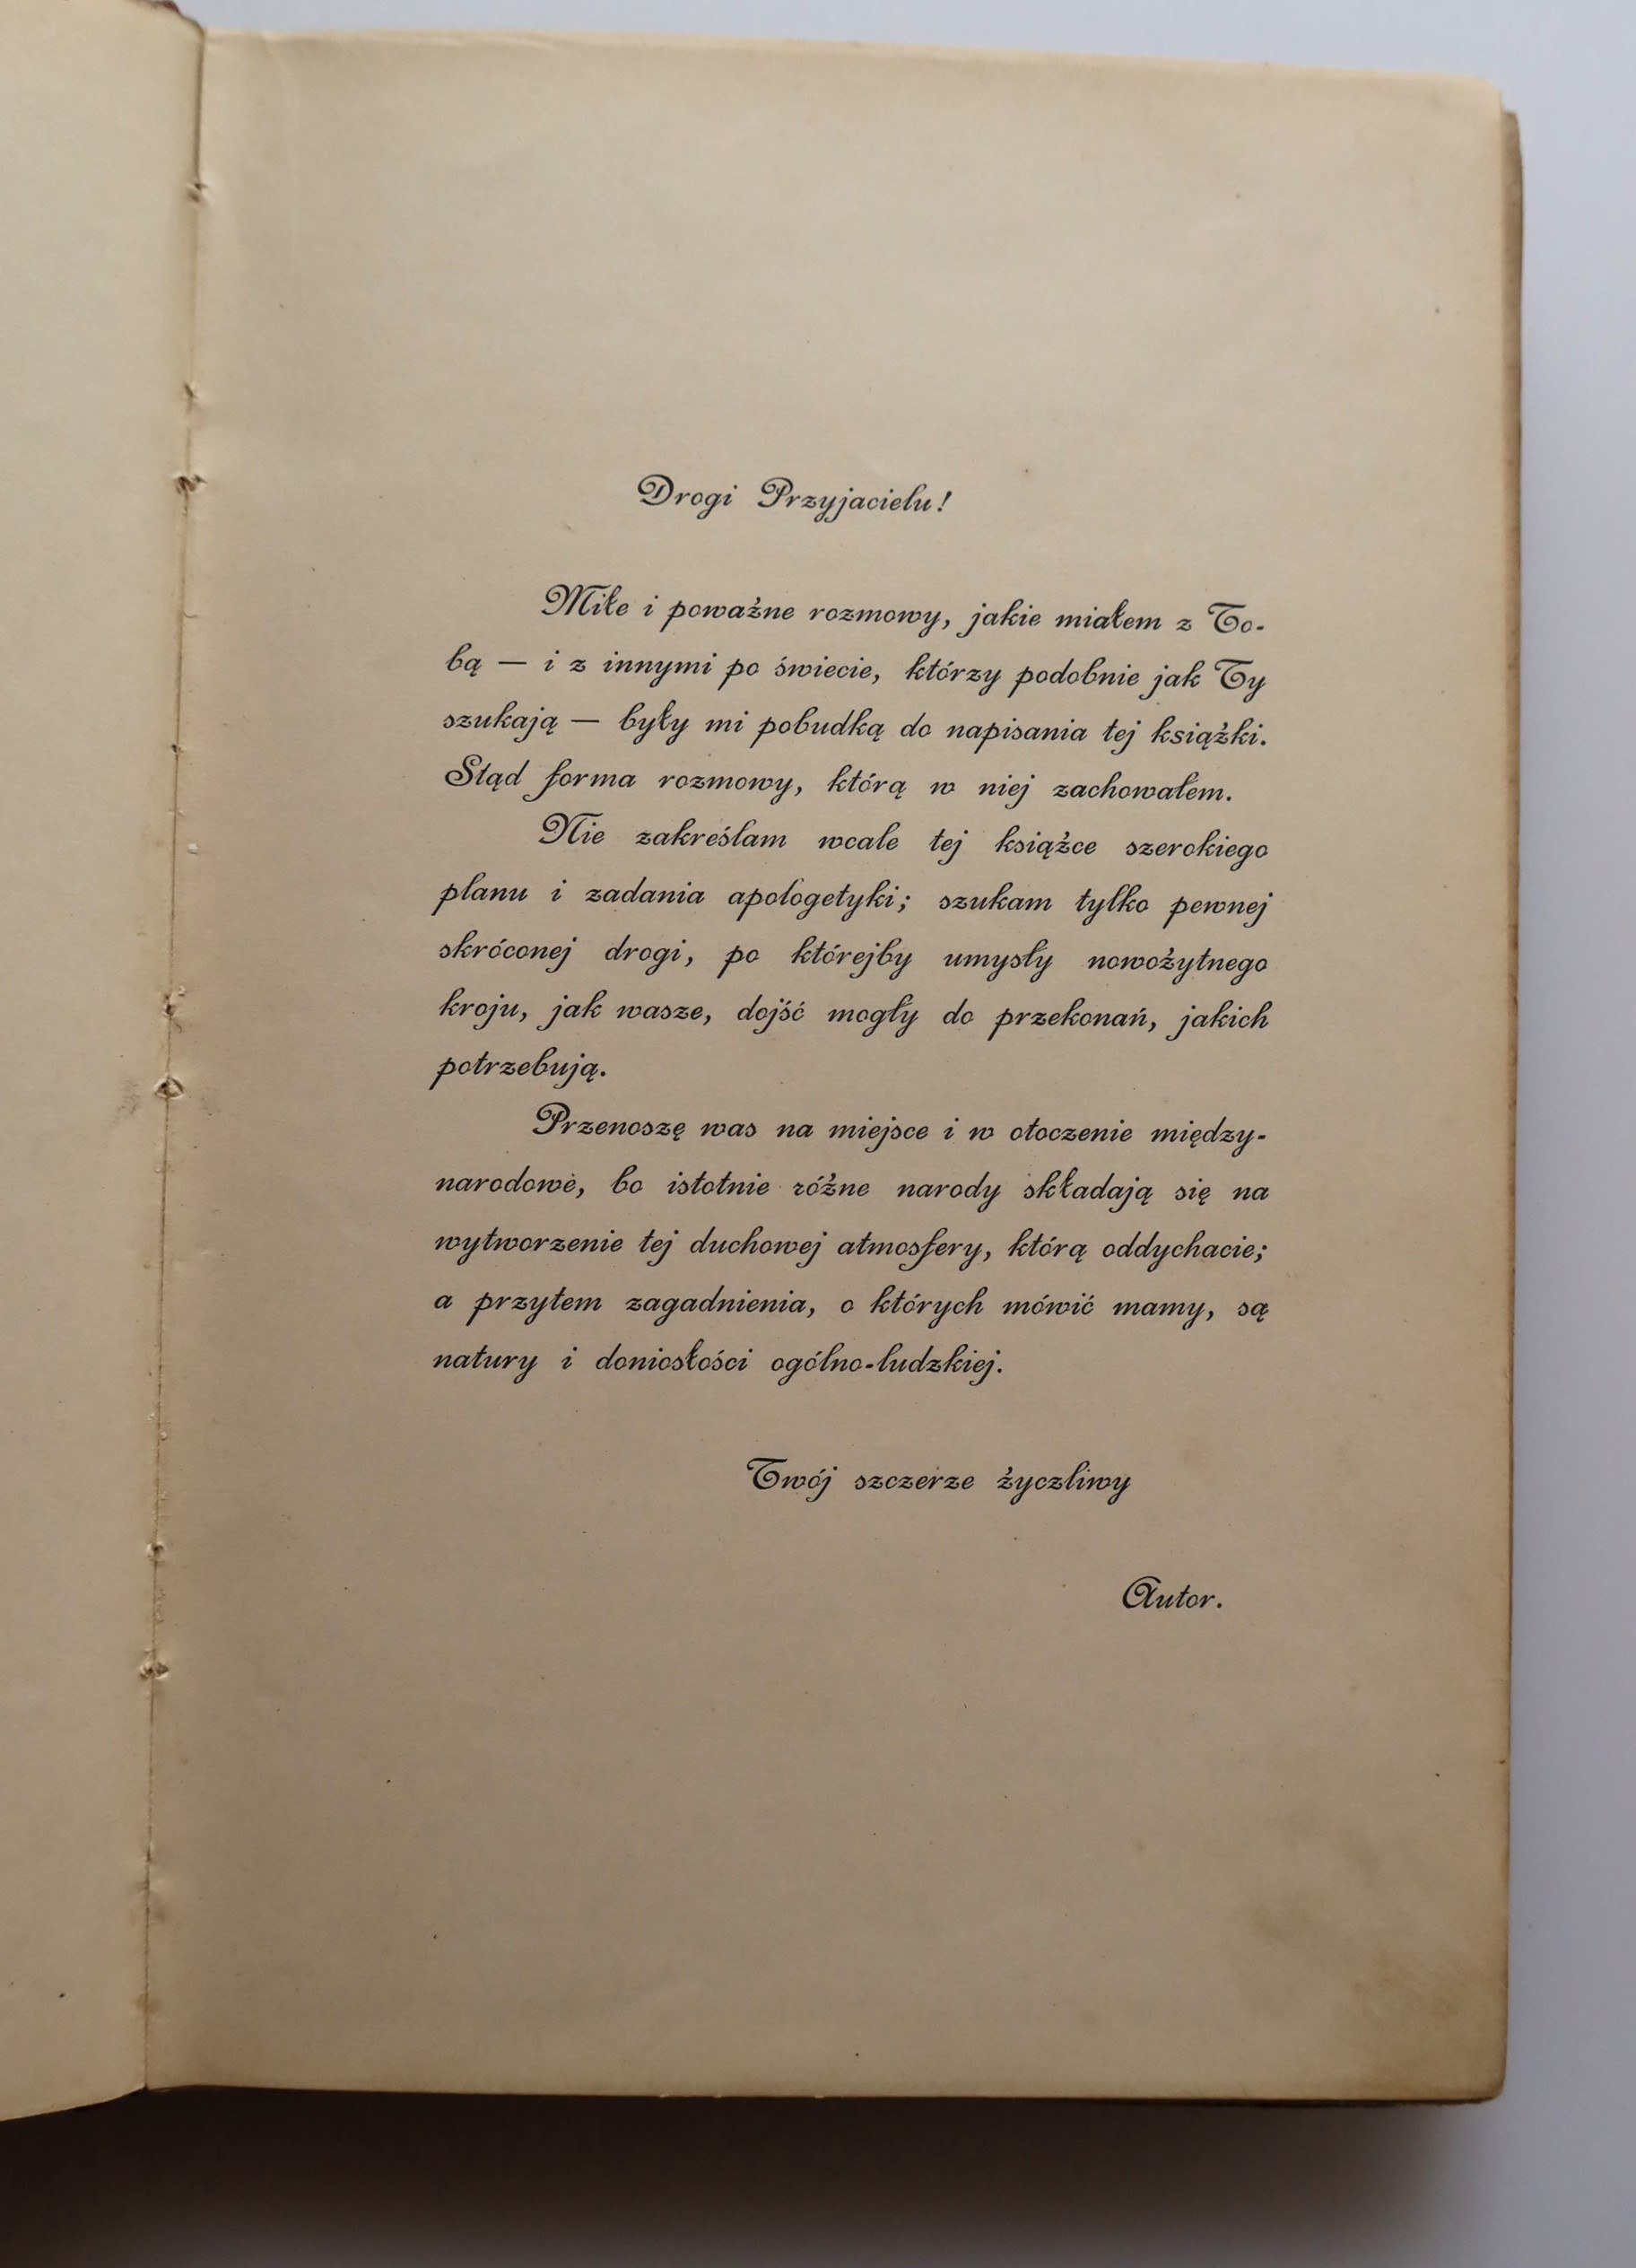 Drogi Przyjacielu!
Miłe i poważne rozmowy, jakie miałem z To-
bą — i z innymi po świecie, którzy podobnie jak Ty
szukają — były mi pobudką do napisania tej książki.
Stąd forma rozmowy, którą w niej zachowałem.
Nie zakreślam wcale tej książce szerokiego
planu i zadania apologetyki; szukam tylko pewnej
skróconej drogi, po którejby umysły nowożytnego
kroju, jak wasze, dojść mogły do przekonań, jakich
potrzebują.
Przenoszę was na miejsce i w otoczenie między-
narodowe, bo istotnie różne narody składają się na
wytworzenie tej duchowej atmosfery, którą oddychacie;
a przytem zagadnienia, o których mówić mamy, są
natury i doniosłości ogólno-ludzkiej.
Twój szczerze życzliwy
Autor.